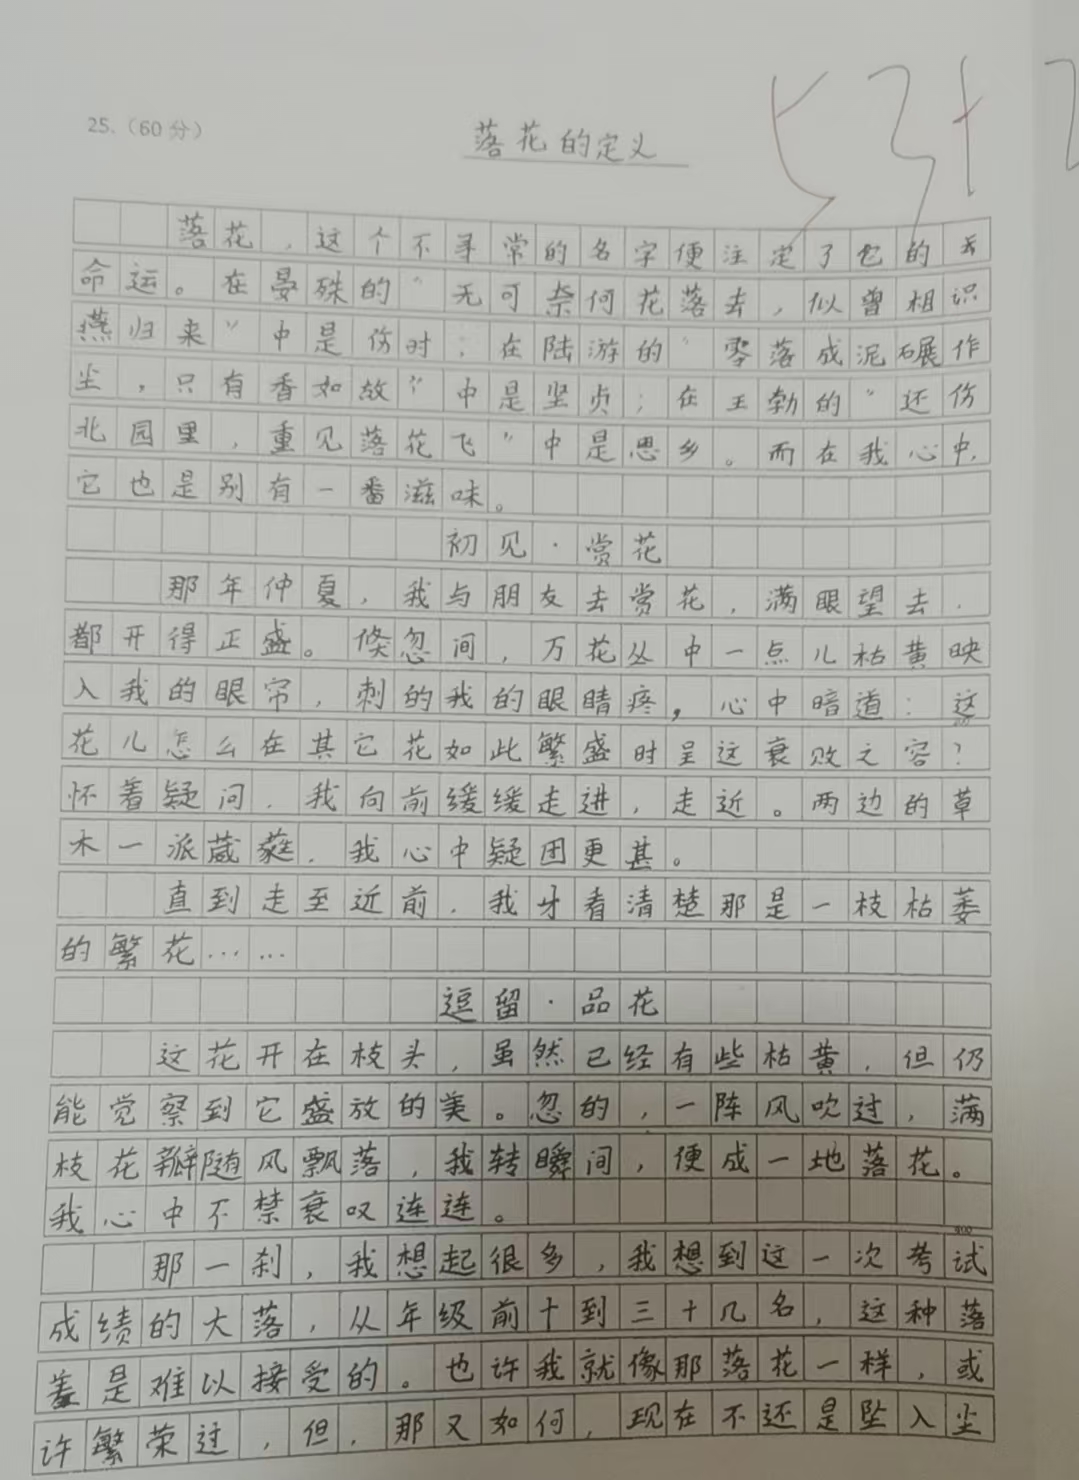 25.（60分）
落花的定义
落花，这个不寻常的名字便注定了它的
命运。在晏殊的“无可奈何花落去，似曾相识
燕归来”中是伤时；在陆游的“零落成泥碾作
尘，只有香如故”中是坚贞；在王勃的“还伤
北园里，重见落花飞”中是思乡。而在我心中，
它也是别有一番滋味。
初见·赏花
那年仲夏，我与朋友去赏花，满眼望去，
都开得正盛。倏忽间，万花丛中一点儿枯黄映
入我的眼帘，刺的我的眼睛疼，心中暗道：这
花儿怎么在其它花如此繁盛时呈这衰败之容？
怀着疑问，我向前缓缓走进，走近。两边的草
木一派葳蕤，我心中疑团更甚。
直到走至近前，我才看清楚那是一枝枯萎
的繁花……
逗留·品花
这花开在枝头，虽然已经有些枯黄，但仍
能觉察到它盛放的美。忽的，一阵风吹过，满
枝花瓣随风飘落，我转瞬间，便成一地落花。
我心中不禁衰叹连连。
那一刹，我想起很多，我想到这一次考试
成绩的大落，从年级前十到三十几名，这种落
差是难以接受的。也许我就像那落花一样，或
许繁荣过，但，那又如何，现在不还是坠入尘